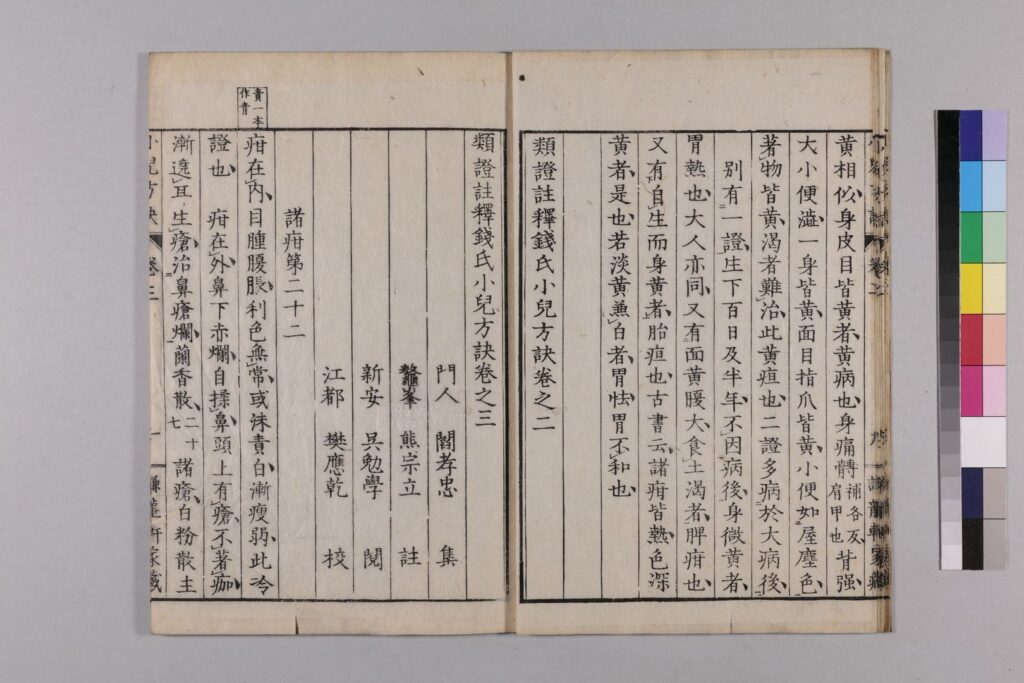 黄相似身皮目皆黄者黄病也身痛髆補各友肩甲也背强
大小便澁一身皆黄面目指爪皆黄小便如屋塵色
著物皆黄渇者難治此黄疸也二證多病於大病後
別有一證生下百日及半年不因病後身微黄者
胃熱也大人亦同又有面黄腹大食土渇者脾疳也
又有自生而身黄者胎疸也古書云諸疳皆熱色深
黄者是也若淡黄兼白者胃怯胃不和也
類證註釋錢氏小兒方訣卷之二
類證註釋錢氏小兒方訣卷之三
門人 閻孝忠 集
鼇峯 熊宗立 註
新安 吳勉學 閲
江都 樊應乾 校
諸疳第二十二
責一本作青
疳在内目腫腹脹利色無常或沫責白漸瘦弱此冷
證也 疳在外鼻下赤爛自揉鼻頭上有瘡不著痂
漸遶耳生瘡治鼻瘡爛蘭香散二十七諸瘡白粉散主
小兒方訣 卷三 一